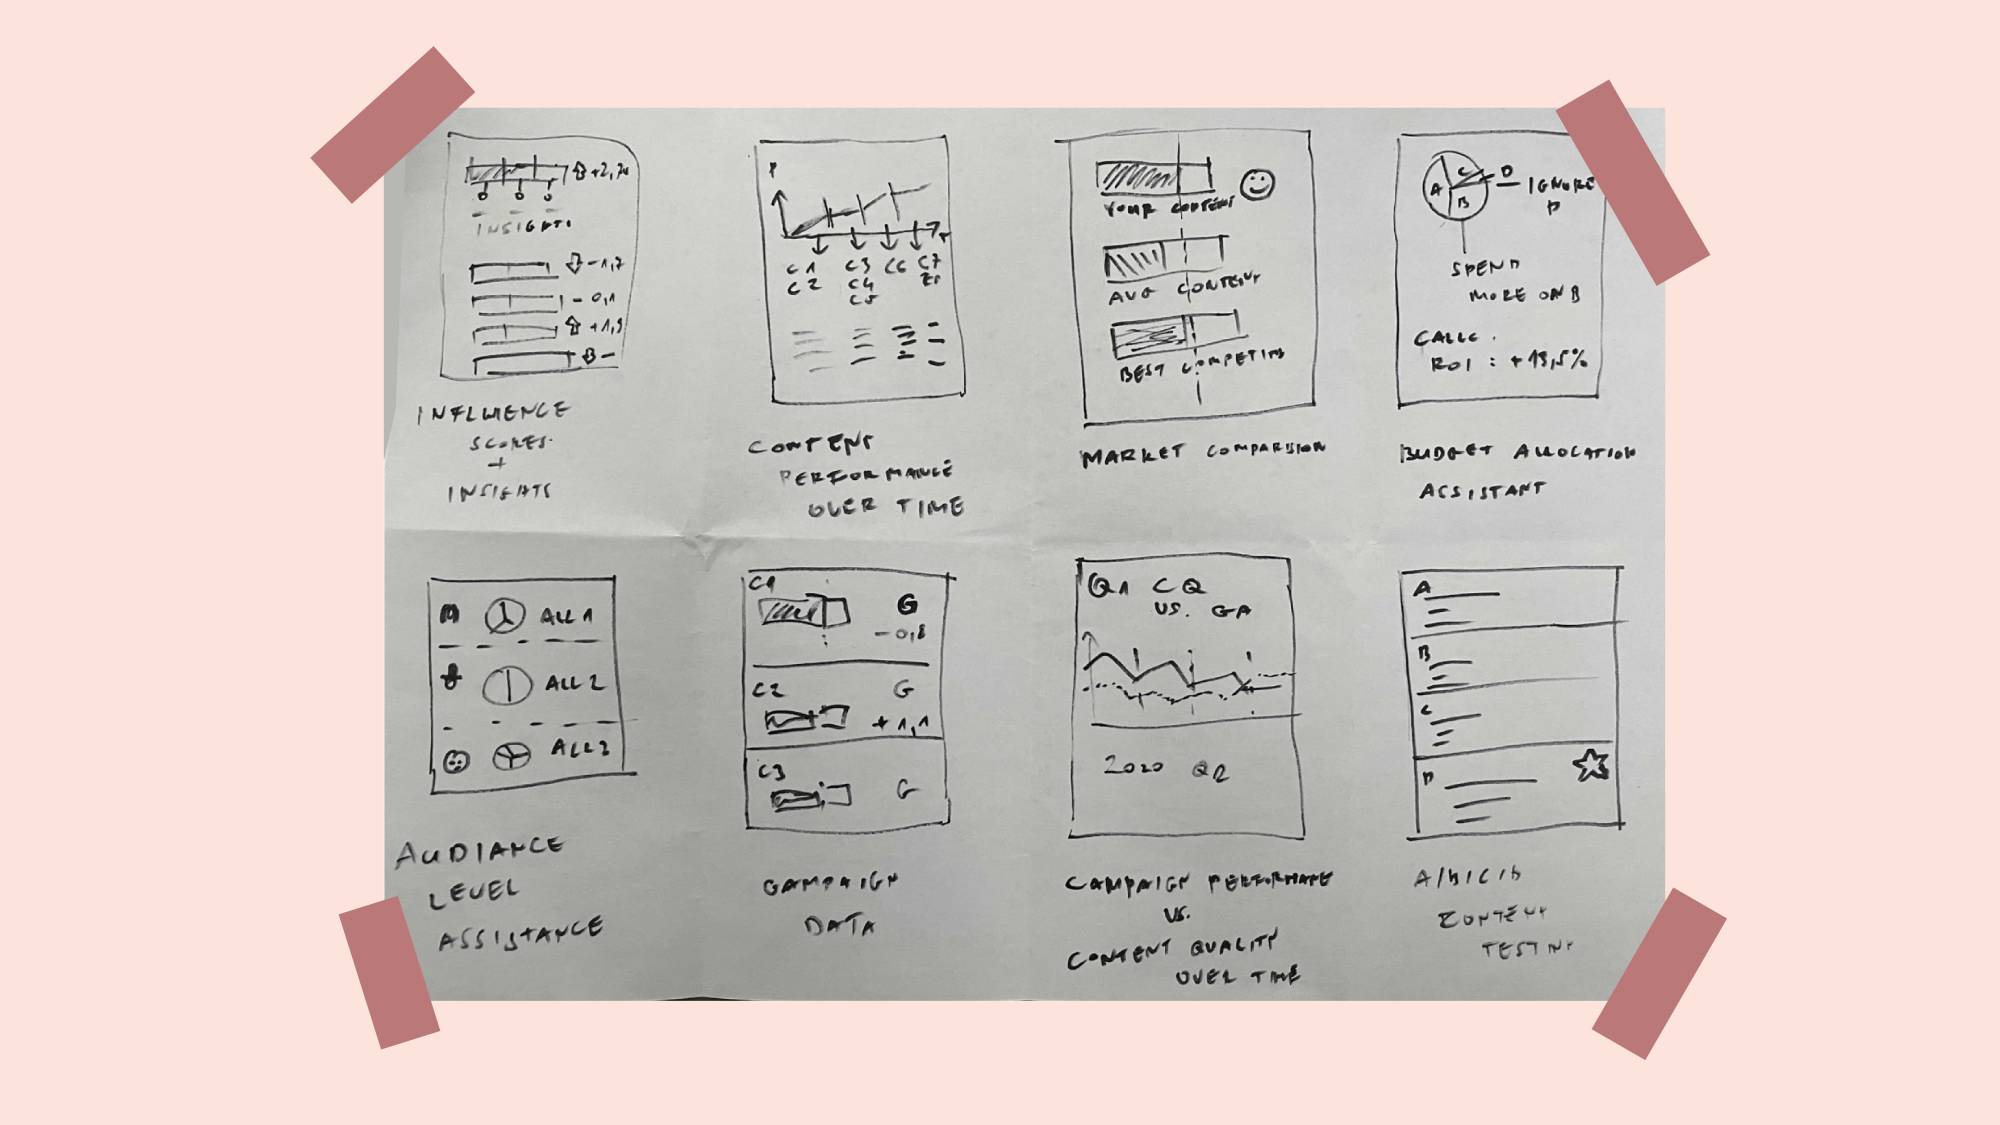 INSIGHTS
-1,7
-0,1
+1,9
INFLUENCE
SCORES
+
INSIGHTS
P
C1
C2
C3
C4
C5
C6
C7
CONTENT
PERFORMANCE
OVER TIME
YOUR CONTENT
AVG CONTENT
BEST COMPETING
MARKET COMPARISION
A
B
C
D
IGNORE
D
SPEND
MORE ON B
CALLC.
ROI : +13,5%
BUDGET ALLOCATION
ASSISTANT
ALL 1
ALL 2
AUDIANCE
LEVEL
ASSISTANCE
C1
G
-0,8
C2
G
+1,1
C3
G
CAMPAIGN
DATA
Q1 CQ
VS. GA
2020 Q2
CAMPAIGN PERFORMANCE
VS.
CONTENT QUALITY
OVER TIME
A
B
C
D
A/B/C/D
CONTENT
TESTING